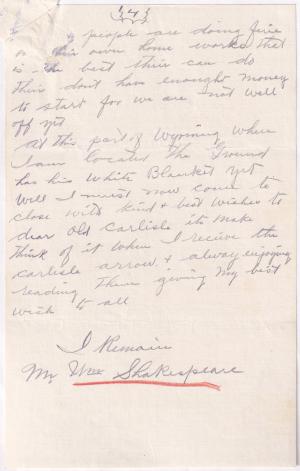 people are doing fine
own home works that
is the best their can do
their dont have enought money
to start for we are not well
off yet
At this part of Wyoming when
I am located The Ground
has his White Blanket yet
Well I must now come to
close with kind & best wishes to
dear old Carlisle its make
think of it when I recive the
carlisle arrow & alway enjoying
reading them giving my best
wish to all
I Remain
Mr Wm Shakespeare